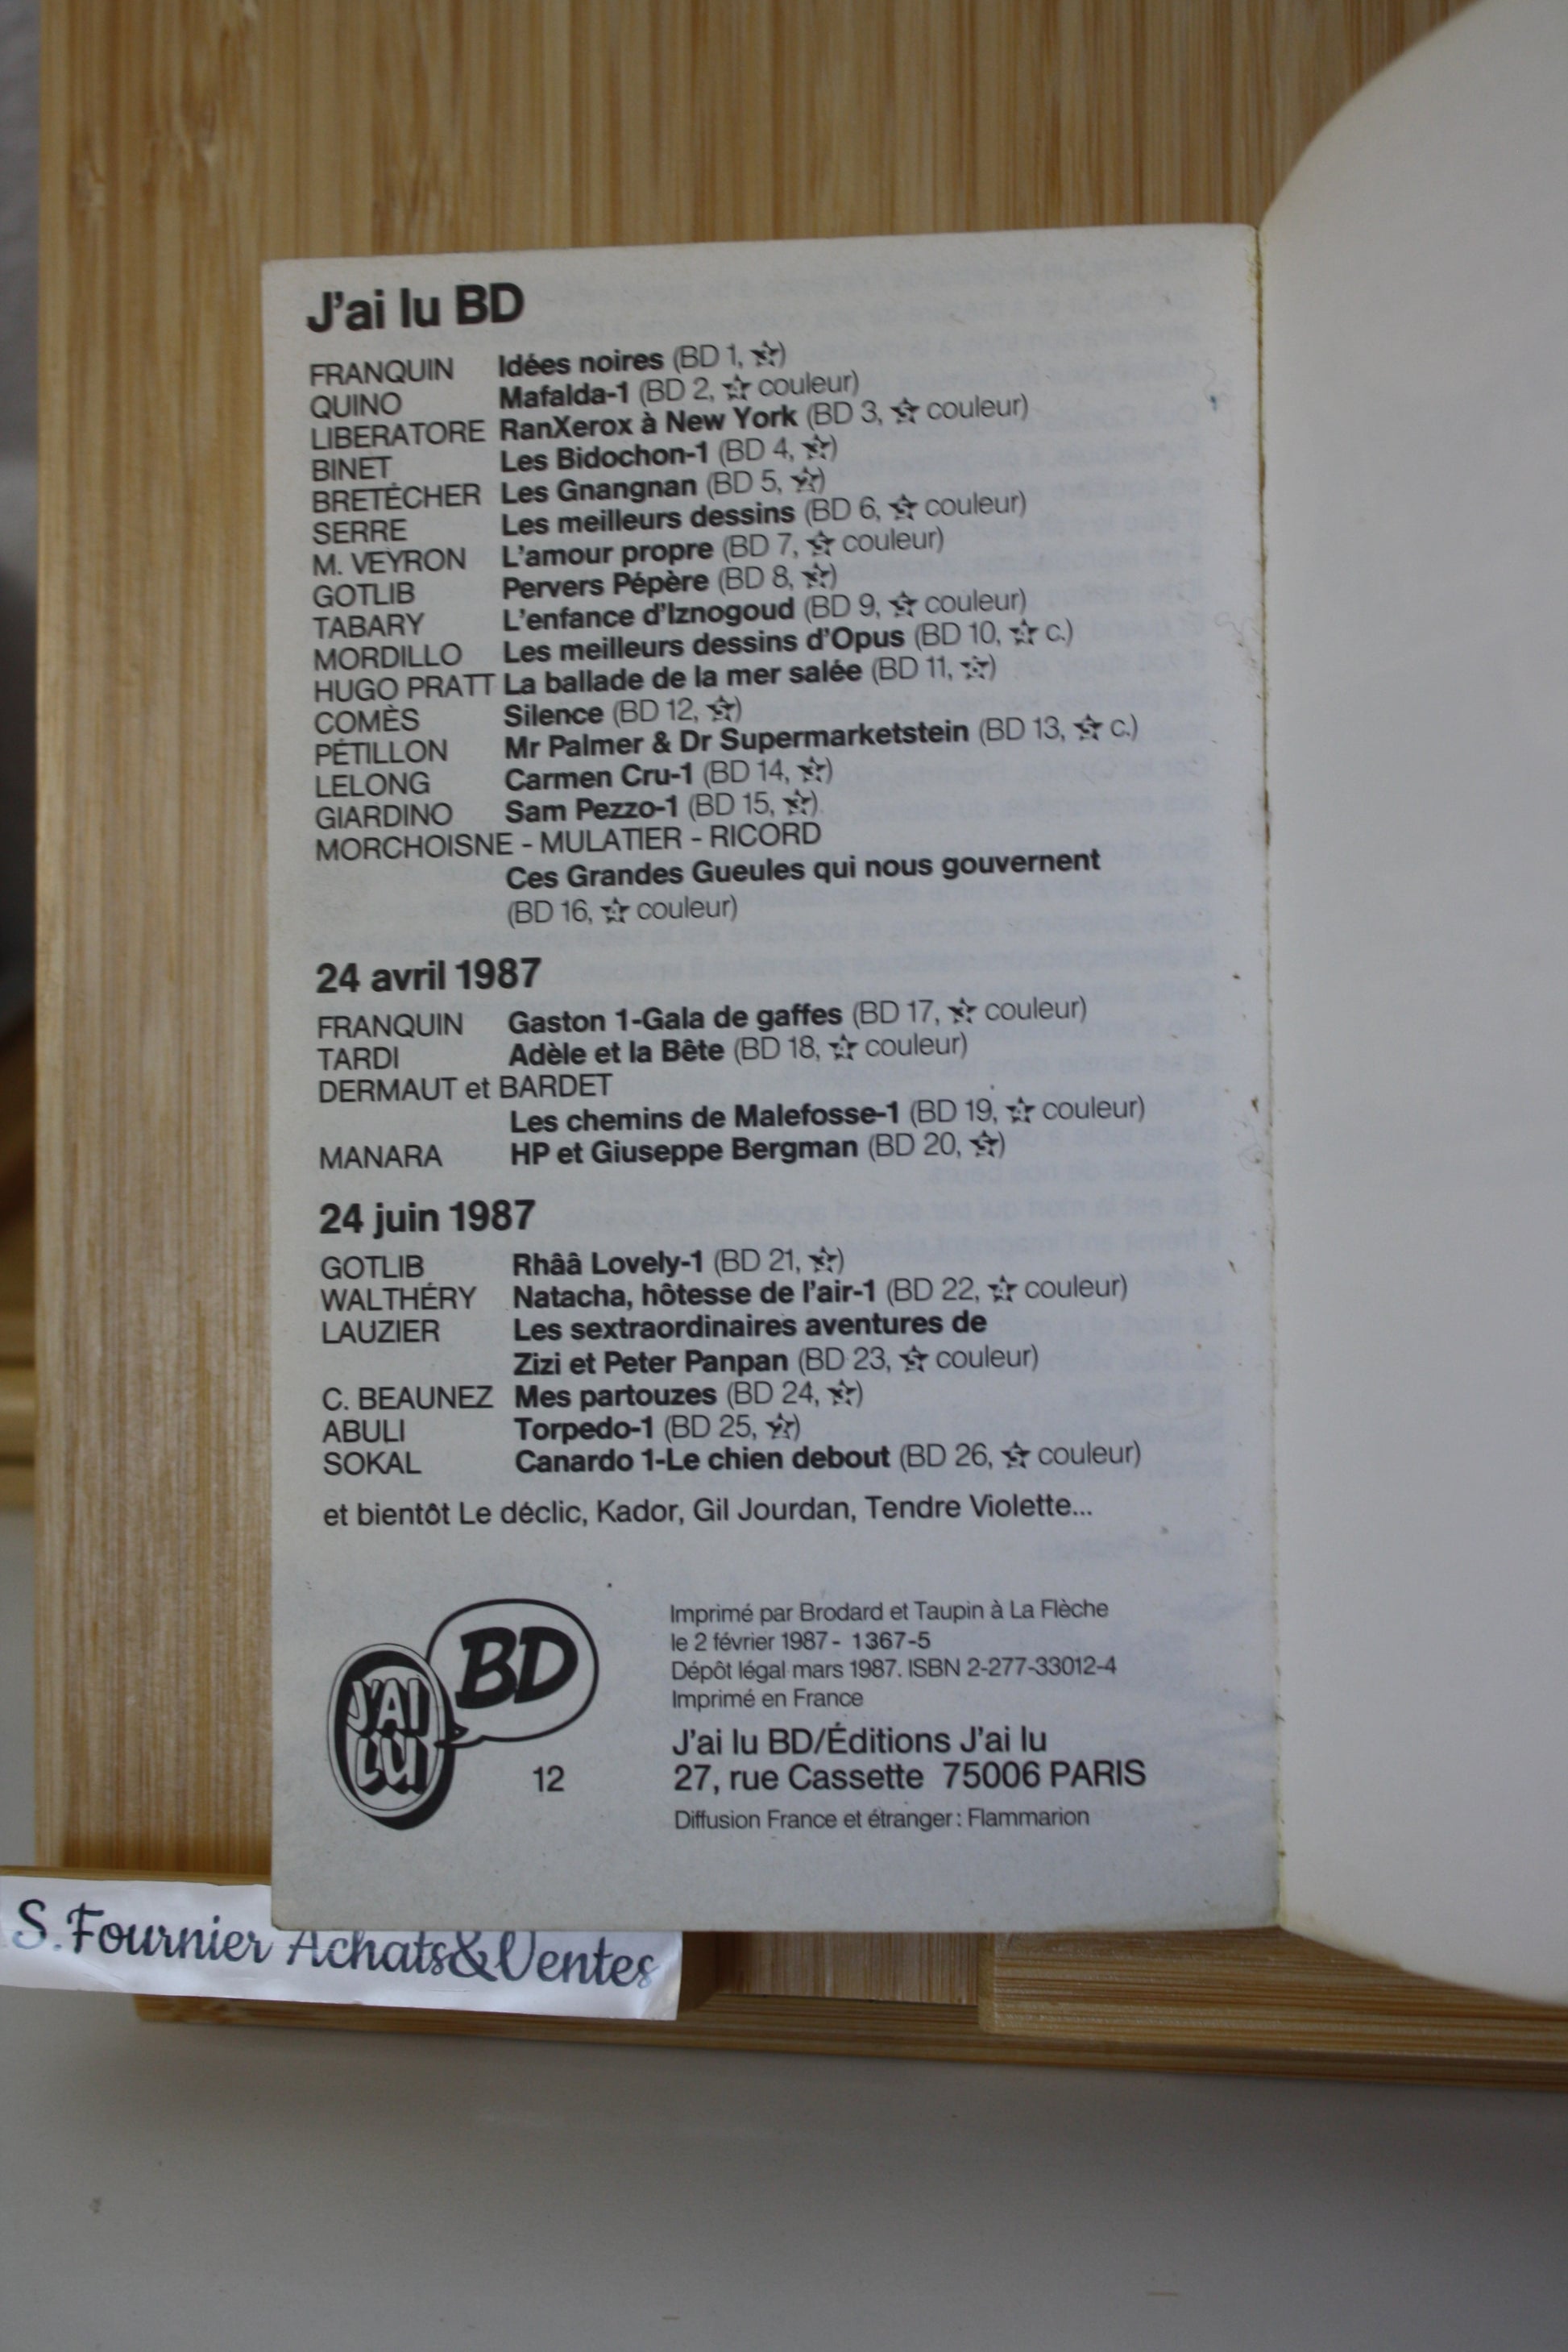 J'ai lu BD
FRANQUIN Idées noires (BD 1, 3)
QUINO Mafalda-1 (BD 2, 4 couleur)
LIBERATORE RanXerox à New York (BD 3, 5 couleur)
BINET Les Bidochon-1 (BD 4, 3)
BRETÉCHER Les Gnangnan (BD 5, 2)
SERRE Les meilleurs dessins (BD 6, 5 couleur)
M. VEYRON L'amour propre (BD 7, 5 couleur)
GOTLIB Pervers Pépère (BD 8, 3)
TABARY L'enfance d'Iznogoud (BD 9, 5 couleur)
MORDILLO Les meilleurs dessins d'Opus (BD 10, 4 c.)
HUGO PRATT La ballade de la mer salée (BD 11, )
COMÈS Silence (BD 12, 5)
PÉTILLON Mr Palmer & Dr Supermarketstein (BD 13, 5 c.)
LELONG Carmen Cru-1 (BD 14, 3)
GIARDINO Sam Pezzo-1 (BD 15, 3)
MORCHOISNE - MULATIER - RICORD
Ces Grandes Gueules qui nous gouvernent
(BD 16, 4 couleur)
24 avril 1987
FRANQUIN Gaston 1-Gala de gaffes (BD 17, 3 couleur)
TARDI Adèle et la Bête (BD 18, 4 couleur)
DERMAUT et BARDET
Les chemins de Malefosse-1 (BD 19, 4 couleur)
MANARA HP et Giuseppe Bergman (BD 20, 5)
24 juin 1987
GOTLIB Rhââ Lovely-1 (BD 21, 3)
WALTHÉRY Natacha, hôtesse de l'air-1 (BD 22, 4 couleur)
LAUZIER Les sextraordinaires aventures de
Zizi et Peter Panpan (BD 23, 5 couleur)
C. BEAUNEZ Mes partouzes (BD 24, 3)
ABULI Torpedo-1 (BD 25, 2)
SOKAL Canardo 1-Le chien debout (BD 26, 5 couleur)
et bientôt Le déclic, Kador, Gil Jourdan, Tendre Violette...
J'AI LU BD
12
Imprimé par Brodard et Taupin à La Flèche
le 2 février 1987 - 1367-5
Dépôt légal mars 1987. ISBN 2-277-33012-4
Imprimé en France
J'ai lu BD/Éditions J'ai lu
27, rue Cassette 75006 PARIS
Diffusion France et étranger : Flammarion
S. Fournier Achats&Ventes